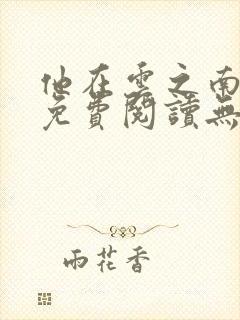 他在雲之南
免費閱讀無
雨花香